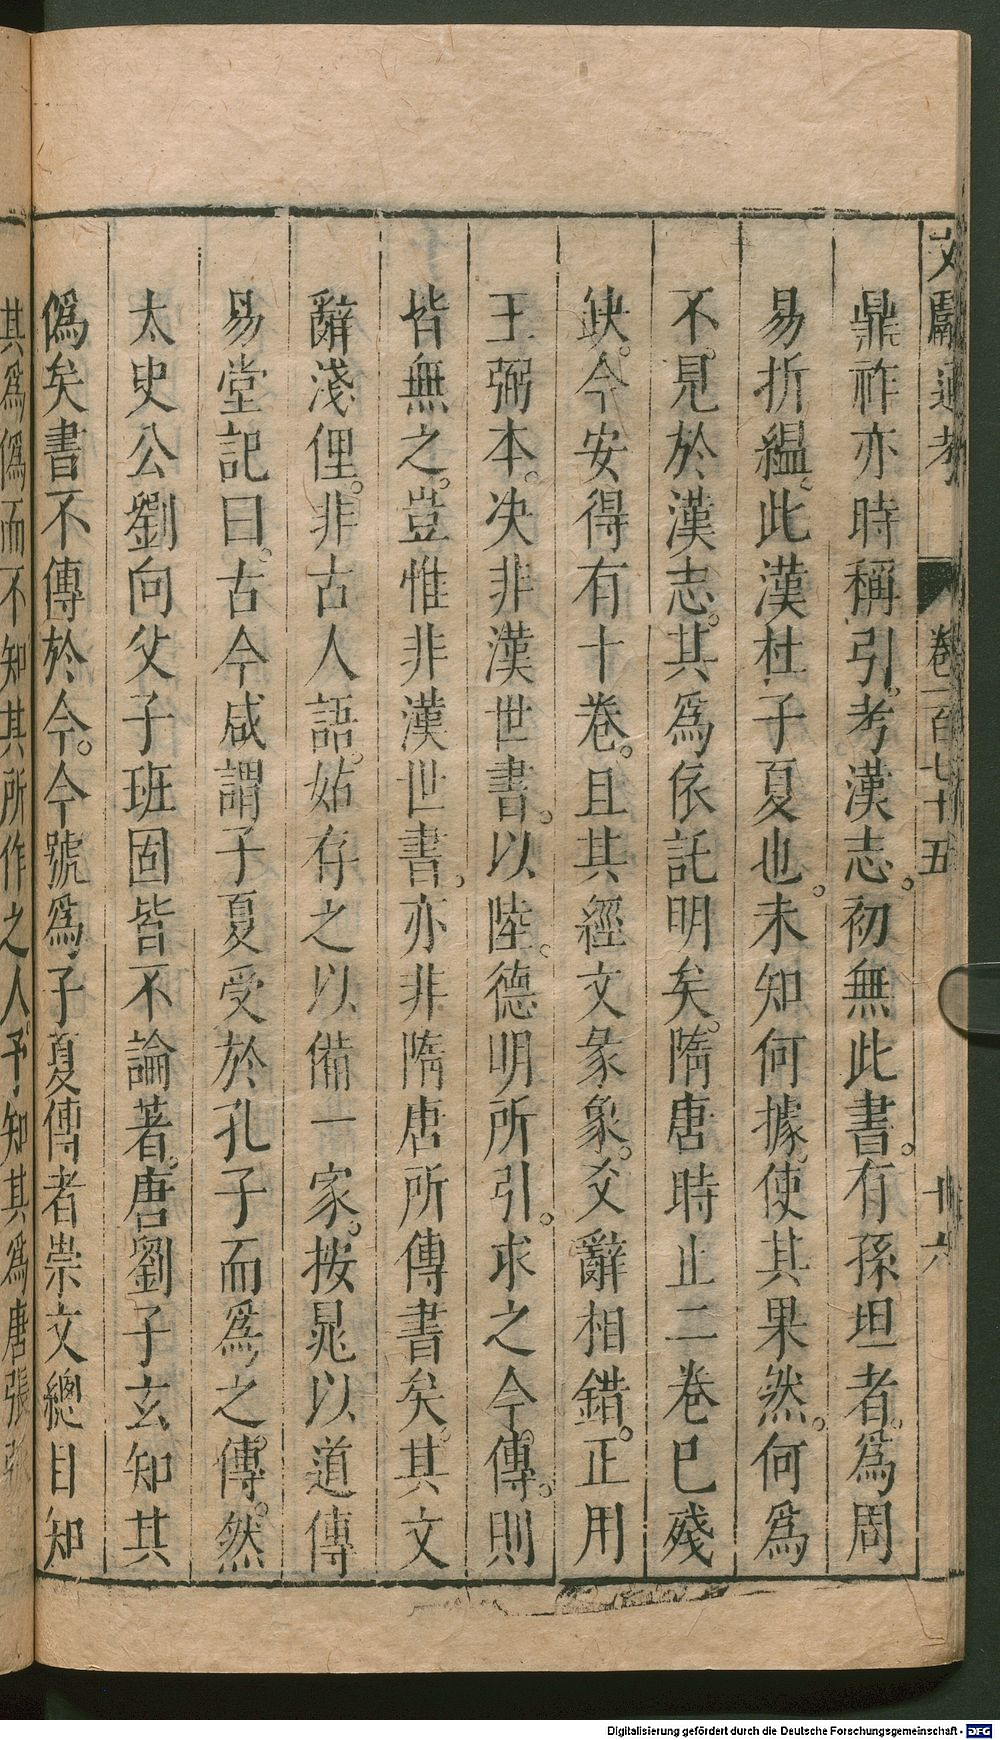 文獻通考 卷一百七十五 十六
鼎祚亦時稱引。考漢志。初無此書。有孫坦者。爲周
易折縕。此漢杜子夏也。未知何據。使其果然。何爲
不見於漢志。其爲依託明矣。隋唐時止二卷已殘
缺。今安得有十卷。且其經文彖象。爻辭相錯。正用
王弼本。决非漢世書。以陸德明所引。求之今傳。則
皆無之。豈惟非漢世書。亦非隋唐所傳書矣。其文
辭淺俚。非古人語。姑存之以備一家。按晁以道傳
易堂記曰。古今咸謂子夏受於孔子而爲之傳。然
太史公劉向父子班固皆不論著。唐劉子玄知其
僞矣書不傳於今。今號爲子夏傳者崇文總目知
其爲僞而不知其所作之人。予知其爲唐張弧
Digitalisierung gefördert durch die Deutsche Forschungsgemeinschaft - DFG